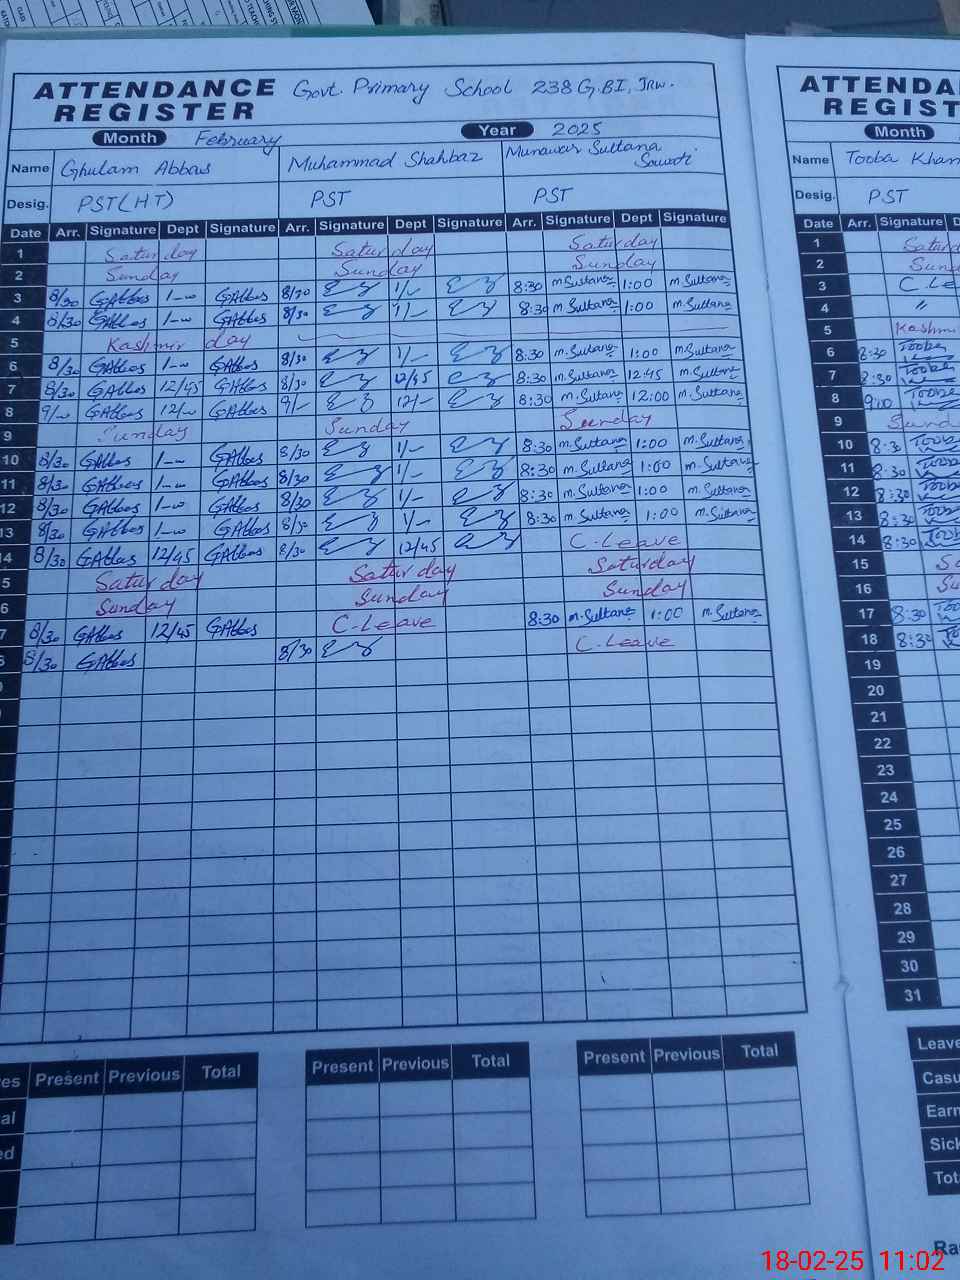 ATTENDANCE REGISTER Govt. Primary School 238 G.BI, JRW.
Month February Year 2025
Name Ghulam Abbas Muhammad Shahbaz Munawar Sultana
Desig. PST(HT) PST PST
Date Arr. Signature Dept Signature Arr. Signature Dept Signature Arr. Signature Dept Signature
1 Saturday Saturday Saturday
2 Sunday Sunday Sunday
3 8/30 GAbbas 1-00 GAbbas 8/30 1/- 8:30 m.Sultana 1:00 m.Sultana
4 8/30 GAbbas 1-00 GAbbas 8/30 1/- 8:30 m.Sultana 1:00 m.Sultana
5 Kashmir day
6 8/30 GAbbas 1-00 GAbbas 8/30 1/- 8:30 m.Sultana 1:00 m.Sultana
7 8/30 GAbbas 12/45 GAbbas 8/30 12/45 8:30 m.Sultana 12:45 m.Sultana
8 9/00 GAbbas 12/00 GAbbas 9/- 12/- 8:30 m.Sultana 12:00 m.Sultana
9 Sunday Sunday Sunday
10 8/30 GAbbas 1-00 GAbbas 8/30 1/- 8:30 m.Sultana 1:00 m.Sultana
11 8/30 GAbbas 1-00 GAbbas 8/30 1/- 8:30 m.Sultana 1:00 m.Sultana
12 8/30 GAbbas 1-00 GAbbas 8/30 1/- 8:30 m.Sultana 1:00 m.Sultana
13 8/30 GAbbas 1-00 GAbbas 8/30 1/- 8:30 m.Sultana 1:00 m.Sultana
14 8/30 GAbbas 12/45 GAbbas 8/30 12/45 C.Leave
5 Saturday Saturday Saturday
6 Sunday Sunday Sunday
7 8/30 GAbbas 12/45 GAbbas C-Leave 8:30 m.Sultana 1:00 m.Sultana
8/30 GAbbas 8/30 C.Leave
Present Previous Total Present Previous Total Present Previous Total
ATTENDA
REGIST
Month
Name Tooba Khan
Desig. PST
Date Arr. Signature
1 Saturd
2 Sund
3 C.Le
4 "
5 Kashm
6 8:30 Tooba
7 8:30 Tooba
8 9:00 Tooba
9 Sund
10 8:30 Tooba
11 8:30 Tooba
12 8:30 Tooba
13 8:30 Tooba
14 8:30 Toob
15 Sa
16 S
17 8:30 Too
18 8:30
19
20
21
22
23
24
25
26
27
28
29
30
31
Leave
Casu
Earn
Sick
Tot
18-02-25 11:02